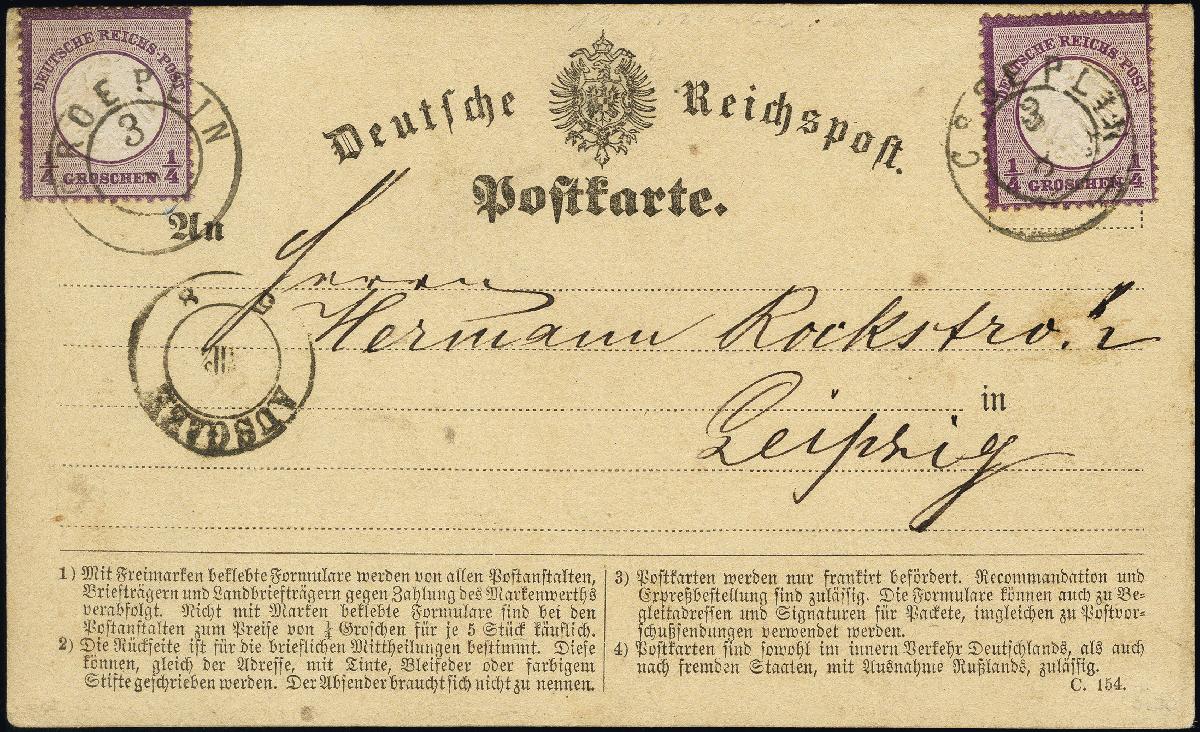 DEUTSCHE REICHS-POST
1/4 GROSCHEN 1/4
CROEPELIN
3
DEUTSCHE REICHS-POST
1/4 GROSCHEN 1/4
3
Deutsche Reichspost.
Postkarte.
An
Herrn
Hermann
in
Leipzig
AUSG
1) Mit Freimarken beklebte Formulare werden von allen Postanstalten,
Briefträgern und Landbriefträgern gegen Zahlung des Markenwerths
verabfolgt. Nicht mit Marken beklebte Formulare sind bei den
Postanstalten zum Preise von ¼ Groschen für je 5 Stück käuflich.
2) Die Rückseite ist für die brieflichen Mittheilungen bestimmt. Diese
können, gleich der Adresse, mit Tinte, Bleifeder oder farbigem
Stifte geschrieben werden. Der Absender braucht sich nicht zu nennen.
3) Postkarten werden nur frankirt befördert. Recommandation und
Expreßbestellung sind zulässig. Die Formulare können auch zu Be-
gleitadressen und Signaturen für Packete, imgleichen zu Postvor-
schußsendungen verwendet werden.
4) Postkarten sind sowohl im innern Verkehr Deutschlands, als auch
nach fremden Staaten, mit Ausnahme Rußlands, zulässig.
C. 154.